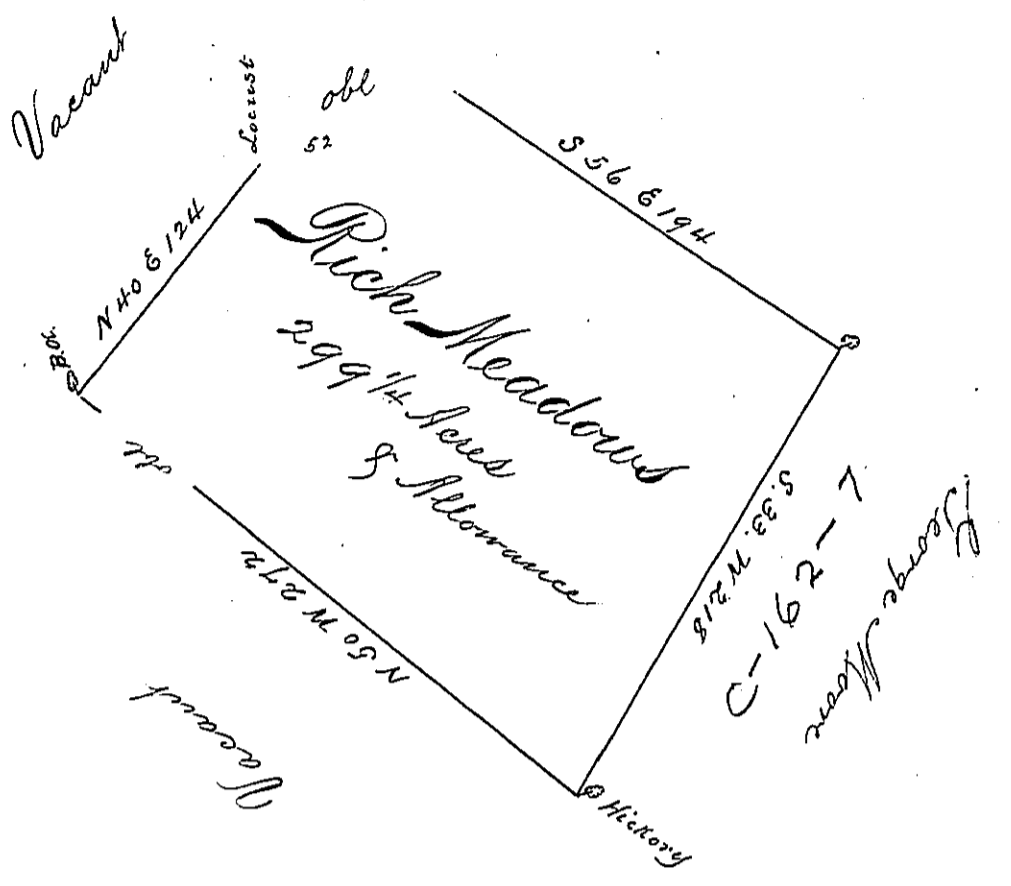 Vacant
Locust
obl
52
S 56 E 194
N 40 E 124
B.Ok.
Rich Meadows
299 1/4 Acres
& Allowance
obl
N 50 W 272
S. 33. W 218
C-162-7
George Moore
Vacant
Hickory